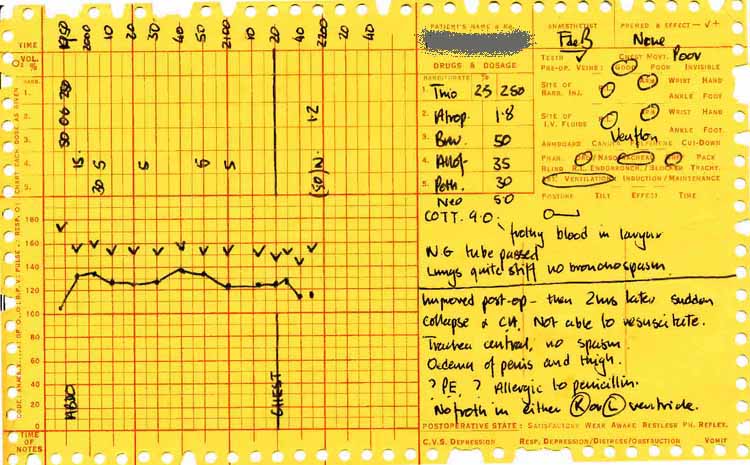 TIME 1950 2000 10 20 30 40 50 2100 10 20 2200 20 40
VOL.
O₂ %
BARB.
1.
2.
3.
4.
5.
CHART EACH DOSE AS GIVEN
15 5 5 5 5 (50)N.
30
1.2
180
160
140
120
100
80
60
40
20
0
ABDO
CHEST
TIME OF NOTES
PATIENT'S NAME & No.
DRUGS & DOSAGE
BARBITURATE %
1. Thio 25 250
2. Atrop. 1.8
3. 50
4. Allof. 35
5. Peth. 30
Neo 5.0
ANAESTHETIST PREMED & EFFECT – ✓ +
F de B None
TEETH ✓ CHEST MOVT. Poor
PRE-OP. VEINS: GOOD POOR INVISIBLE
SITE OF BARB. INJ. R.L. ARM WRIST HAND
ANKLE FOOT
SITE OF I.V. FLUIDS R.L. ARM WRIST HAND
ANKLE FOOT
Venflon
ARMBOARD CANULA POLYTHENE CUT-DOWN
PHAR. ORO/NASO TRACHEAL PACK
BLIND R.L. ENDOBRONCH./BLOCKER TRACHY.
INT. VENTILATION INDUCTION/MAINTENANCE
POSTURE TILT EFFECT TIME
COTT. 9.0.
frothy blood in larynx
N.G tube passed
Lungs quite stiff no bronchospasm.
Improved post-op – then 2hrs later sudden
collapse & CA. Not able to resuscitate.
Trachea central, no spasm.
Oedema of penis and thigh.
? PE, ? Allergic to penicillin.
No froth in either (R) or (L) ventricle.
POSTOPERATIVE STATE: SATISFACTORY WEAK AWAKE RESTLESS PH. REFLEX.
C.V.S. DEPRESSION RESP. DEPRESSION/DISTRESS/OBSTRUCTION VOMIT